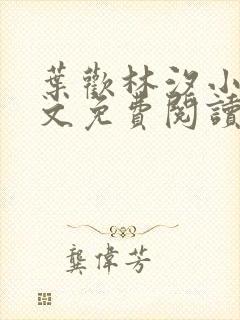 葉歡林汐小
文免費閱讀
龔偉芳